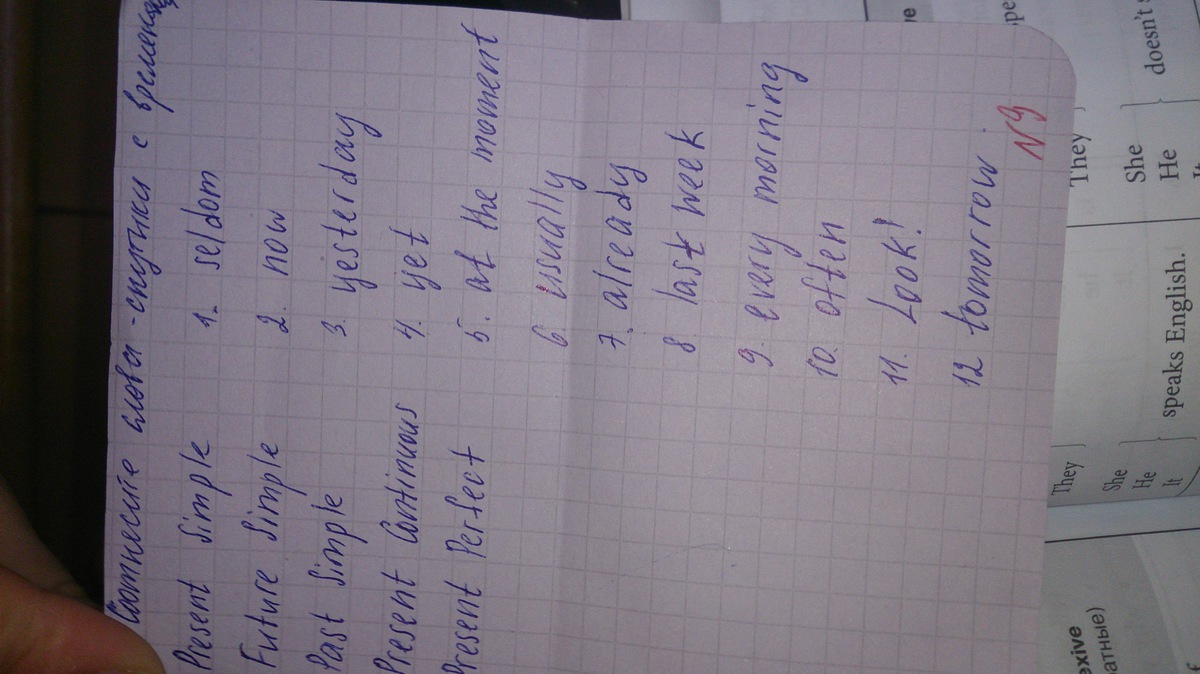 Соотнесите слова-спутники с временами
Present Simple 1. seldom
Future Simple 2. now
Past Simple 3. yesterday
Present Continuous 4. yet
Present Perfect 5. at the moment
6. usually
7. already
8. last week
9. every morning
10. often
11. Look!
12 tomorrow
N9
They
She
He
doesn't
They
She
He
It
speaks English.